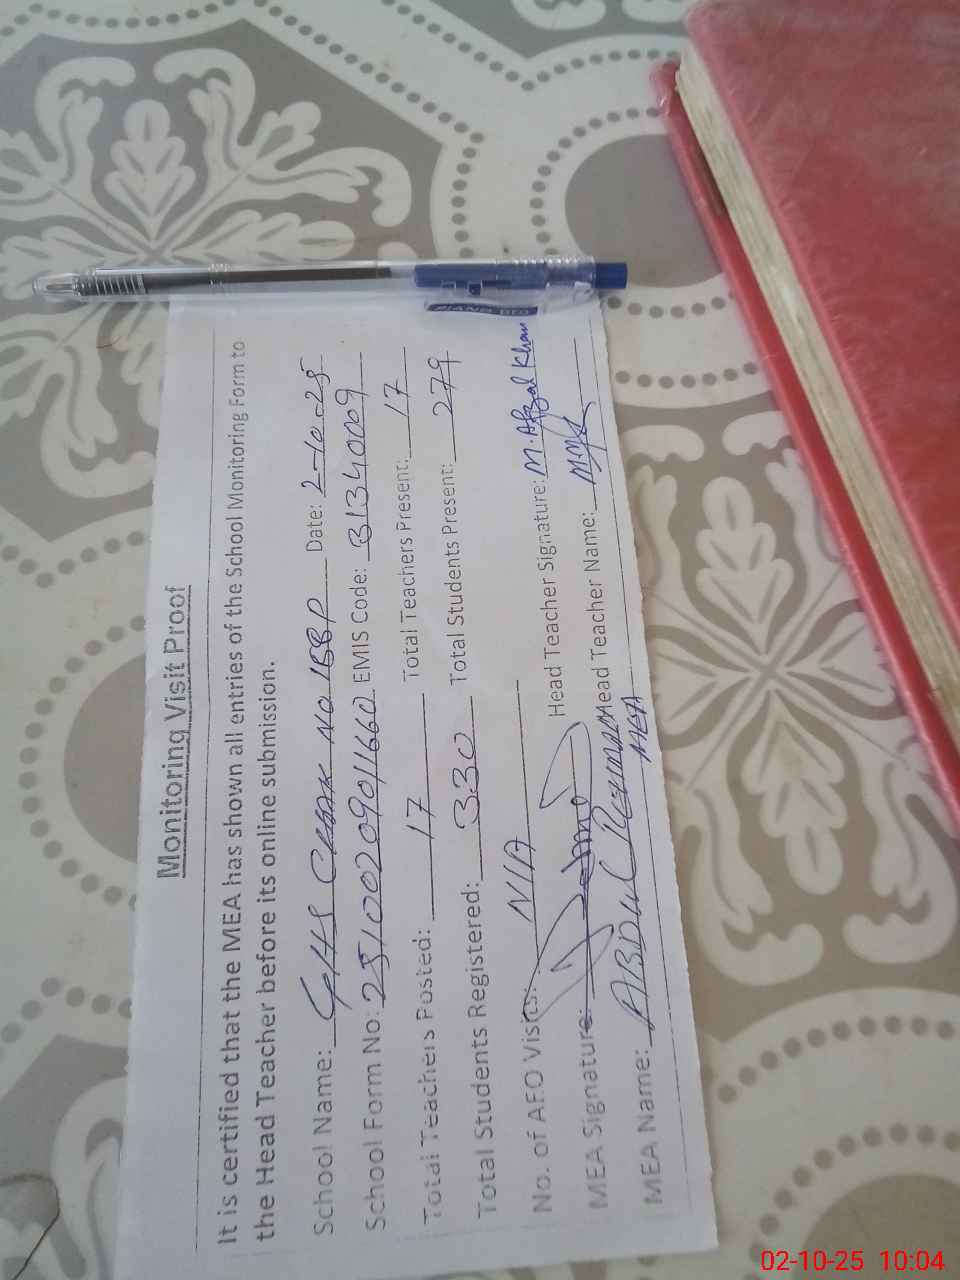 Monitoring Visit Proof
It is certified that the MEA has shown all entries of the School Monitoring Form to
the Head Teacher before its online submission.
School Name: GHS CHAK NO 1BBP Date: 2-10-25
School Form No: 25100209011660 EMIS Code: 31340009
Total Teachers Posted: 17 Total Teachers Present: 17
Total Students Registered: 330 Total Students Present: 279
No. of AEO Visits: N/A
MEA Signature: Head Teacher Signature: M. Afzal Khan
MEA Name: ABDUL REHMAN MEA Head Teacher Name:
PIANO
02-10-25 10:04